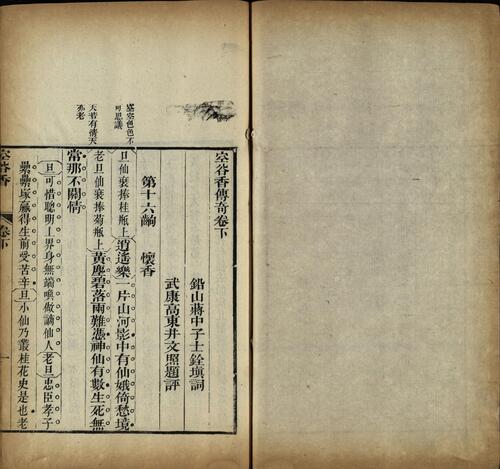 空谷香傳奇卷下
鉛山蔣中子士銓填詞
武康高東井文照題評
第十六齣 懷香
空空色色不
可思議
旦仙裳捧桂瓶上逍遙樂一片山河影中有仙娥倚愁境
天若有情天
亦老
老旦仙裳捧菊瓶上黃塵碧落兩難憑神仙有數生死無
常那不關情
旦可惜聰明上界身無端喚做謫仙人老旦忠臣孝子
纍纍塚贏得生前受苦辛旦小仙乃叢桂花史是也老
空谷香 卷下 一